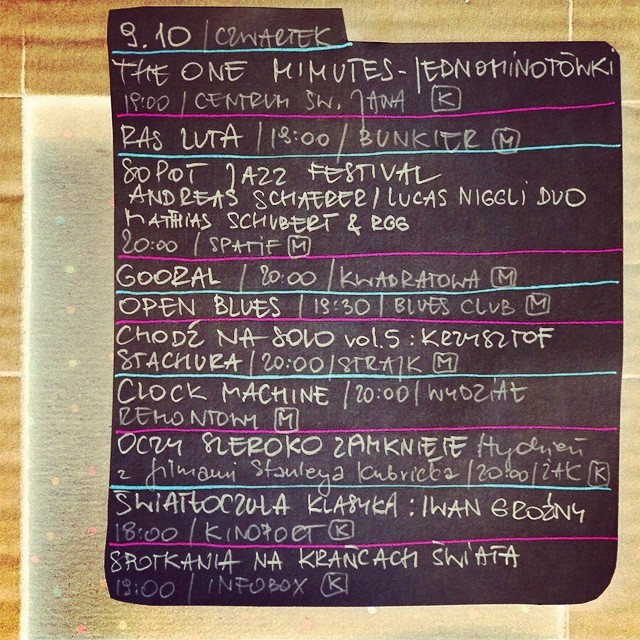 9.10 | CZWARTEK
THE ONE MINUTES - JEDNOMINUTÓWKI
19:00 / CENTRUM ŚW. JANA K
RAS LUTA / 19:00 / BUNKIER M
SOPOT JAZZ FESTIVAL
ANDREAS SCHAERER / LUCAS NIGGLI DUO
MATTHIAS SCHUBERT & RGG
20:00 / SPATIF M
GOORAL / 20:00 / KWADRATOWA M
OPEN BLUES / 19:30 / BLUES CLUB M
CHODŹ NA SOLO vol.5 : KRZYSZTOF
STACHURA / 20:00 / STRAJK M
CLOCK MACHINE / 20:00 / WYDZIAŁ
REMONTOWY M
OCZY SZEROKO ZAMKNIĘTE / tydzień
z filmami Stanleya Kubricka / 20:00 / ŻAK K
ŚWIATŁOCZUŁA KLASYKA : IWAN GROŹNY
18:00 / KINOPORT K
SPOTKANIA NA KRAŃCACH ŚWIATA
19:00 / INFOBOX K